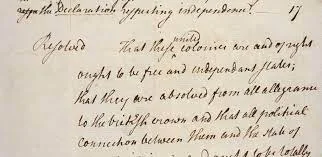 the Declaration independence. 17
Resolved That these united colonies are and of right
ought to be free and independant states;
that they are absolved from all allegiance
to the british crown and that all political
connection between them and the state of
ought to be totally